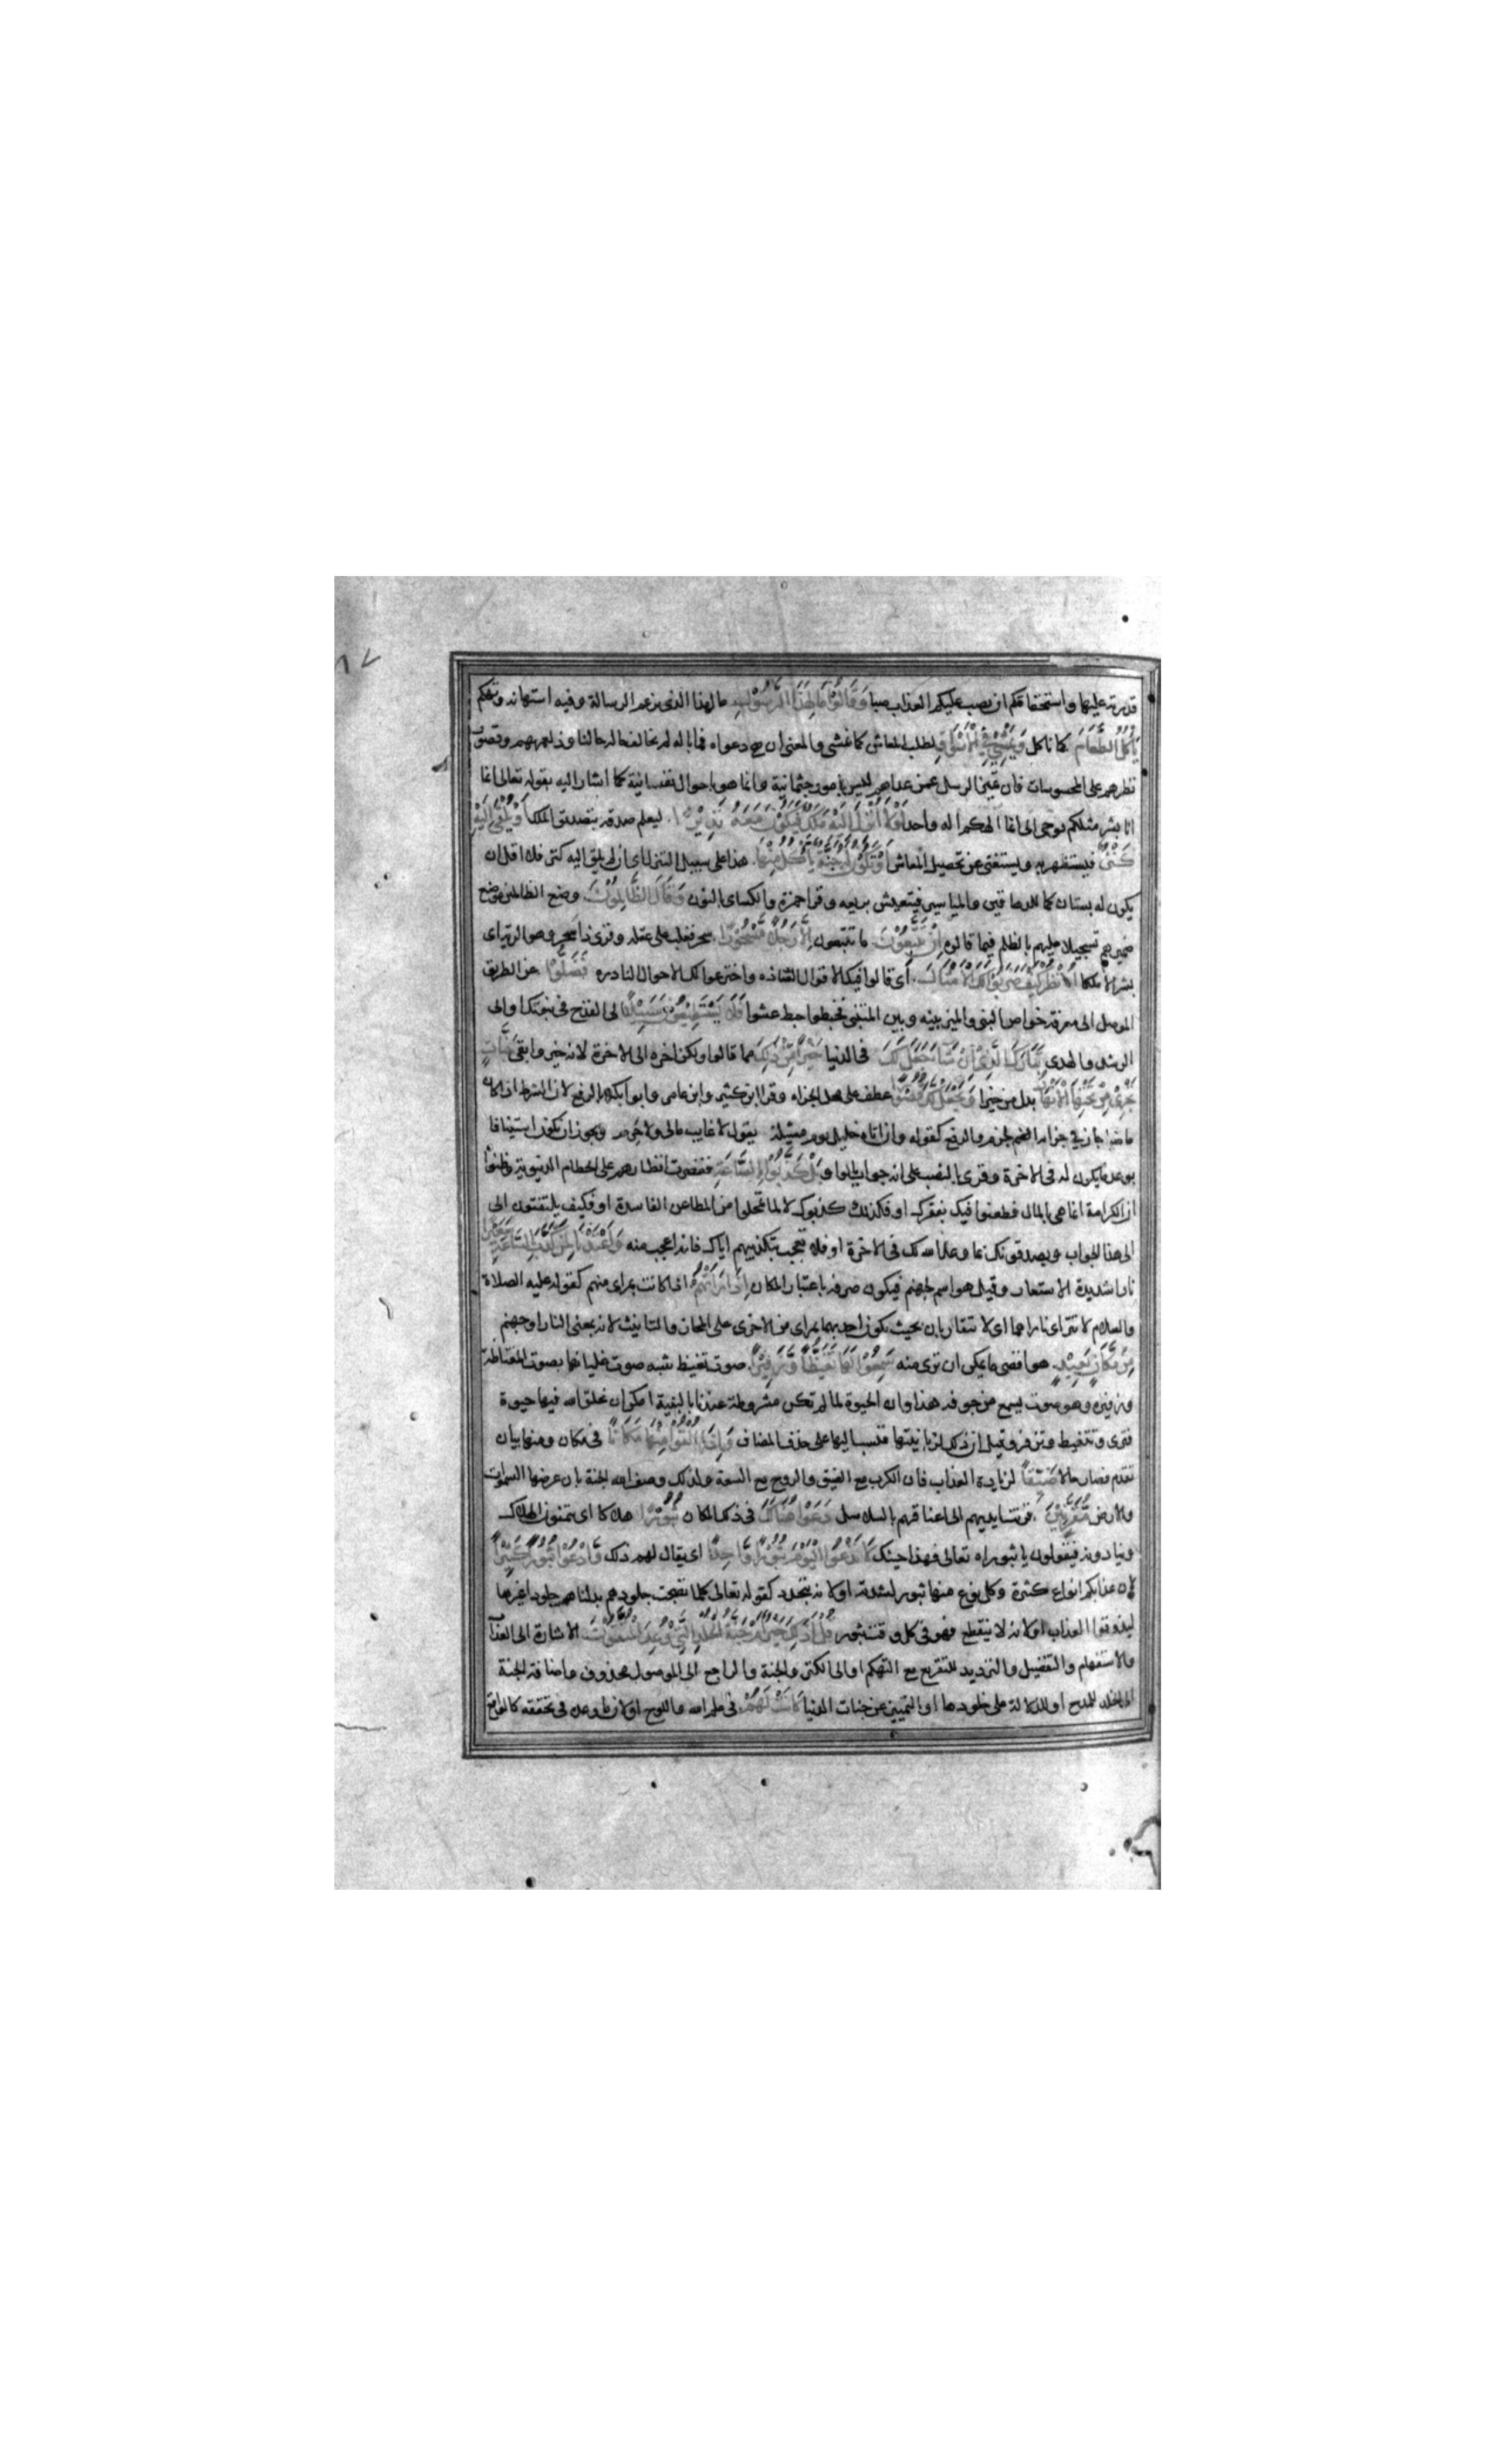 قدرته عليها واستحقاقكم ان يصب عليكم العذاب صبا وَقَالُوْا مَا لِهٰذَا الرَّسُوْلِ ما لهذا الذى يزعم الرسالة وفيه استهانه وتهكم
يَأْكُلُ الطَّعَامَ كما ناكل وَيَمْشِيْ فِي الْاَسْوَاقِ لطلب المعاش كما نمشى والمعنى ان صح دعواه فما باله لم يخالف حاله حالنا وذلك لعمههم وقصور
نظرهم على المحسوسات فان تميز الرسل عمن عداهم ليس بامور جثمانية وانما هو باحوال نفسانية كما اشار اليه بقوله تعالى انما
انا بشر مثلكم يوحى الى انما الهكم اله واحد لَوْلَا اُنْزِلَ اِلَيْهِ مَلَكٌ فَيَكُوْنَ مَعَهُ نَذِيْرًا ليعلم صدقه بتصديق الملك اَوْ يُلْقٰى اِلَيْهِ
كَنْزٌ فيستظهر به ويستغنى عن تحصيل المعاش اَوْ تَكُوْنُ لَهُ جَنَّةٌ يَأْكُلُ مِنْهَا هذا على سبيل التنزل اى ان لم يلق اليه كنز فلا اقل ان
يكون له بستان كما للدهاقين والمياسير فيتعيش بريعه وقرا حمزة والكساى بالنون وَقَالَ الظَّالِمُوْنَ وضع الظالمين موضع
ضميرهم تسجيلا عليهم بالظلم فيما قالوه اِنْ تَتَّبِعُوْنَ ما تتبعون اِلَّا رَجُلًا مَسْحُوْرًا سحر فغلب على عقله وقرى ذا سحر وهو الرية اى
بشرا لا ملكا اُنْظُرْ كَيْفَ ضَرَبُوْا لَكَ الْاَمْثَالَ اى قالوا فيك الاقوال الشاذه واخترعوا لك الاحوال النادره فَضَلُّوْا عن الطريق
الموصل الى معرفة خواص النبى والميز بينه وبين المتنبى فخبطوا خبط عشوا فَلَا يَسْتَطِيْعُوْنَ سَبِيْلًا الى القدح فى نبوتك او الى
الرشد والهدى تَبَارَكَ الَّذِيْ اِنْ شَاءَ جَعَلَ لَكَ فى الدنيا خَيْرًا مِنْ ذٰلِكَ مما قالوا ولكن اخره الى الاخرة لانه خير وابقى جَنَّاتٍ
تَجْرِيْ مِنْ تَحْتِهَا الْاَنْهَارُ بدل من خيرا وَيَجْعَلْ لَكَ قُصُوْرًا عطف على محل الجزاء وقرا ابن كثير وابن عامر وابو بكر بالرفع لان الشرط اذا كان
ماضيا جاز فى جزاه الجزم والرفع كقوله وان اتاه خليل يوم مسئلة يقول لا غايب مالى ولا حرم ويجوز ان يكون استينافا
بوعد ما يكون له فى الاخرة وقرى بالنصب على انه جواب بالواو بَلْ كَذَّبُوْا بِالسَّاعَةِ فقصرت انظارهم على الحطام الدنيوية وظنوا
ان الكرامة انما هى بالمال فطعنوا فيك بفقرك او فلذلك كذبوك لا لما تمحلوا من المطاعن الفاسدة او فكيف يلتفتون الى
الى هذا الجواب ويصدقونك بما وعد الله لك فى الاخرة او فلا تعجب تكذيبهم اياك فانه اعجب منه وَاَعْتَدْنَا لِمَنْ كَذَّبَ بِالسَّاعَةِ سَعِيْرًا
نارا شديدة الاستعار وقيل هو اسم لجهنم فيكون صرفه باعتبار المكان اِذَا رَاَتْهُمْ اذا كانت بمراى منهم كقوله عليه الصلاة
والسلام لا تتراى ناراهما اى لا تتقاربان بحيث يكون احديهما بمراى من الاخرى على المجاز والتانيث لانه بمعنى النار او جهنم
مِنْ مَكَانٍ بَعِيْدٍ هو اقصى ما يمكن ان يرى منه سَمِعُوْا لَهَا تَغَيُّظًا وَزَفِيْرًا صوت تغيظ شبه صوت غليانها بصوت المغتاظ
وزفيره وهو صوت يسمع من جوفه هذا وان الحيوة لما لم تكن مشروطة عندنا بالبنية امكن ان يخلق الله فيها حيوة
فترى وتتغيط وتزفر وقيل ان ذلك لزبانيتها فنسب اليها على حذف المضاف وَاِذَا اُلْقُوْا مِنْهَا مَكَانًا فى مكان ومنها بيان
تقدم فصار حالا ضَيِّقًا لزيادة العذاب فان الكرب مع الضيق والروح مع السعة ولذلك وصف الله الجنة بان عرضها السموات
والارض مُقَرَّنِيْنَ قرنت ايديهم الى اعناقهم بالسلاسل دَعَوْا هُنَالِكَ فى ذلك المكان ثُبُوْرًا هلاكا اى يتمنون الهلاك
وينادونه فيقولون يا ثبوراه تعالى فهذا حينك لَا تَدْعُوا الْيَوْمَ ثُبُوْرًا وَاحِدًا اى يقال لهم ذلك وَادْعُوْا ثُبُوْرًا كَثِيْرًا
لان عذابكم انواع كثيرة وكل نوع منها ثبور لشدته او لانه يتجدد كقوله تعالى كلما نضجت جلودهم بدلناهم جلودا غيرها
ليذوقوا العذاب او لانه لا ينقطع فهو فى كل وقت ثبور قُلْ اَذٰلِكَ خَيْرٌ اَمْ جَنَّةُ الْخُلْدِ الَّتِيْ وُعِدَ الْمُتَّقُوْنَ الاشارة الى العذاب
والاستفهام والتفضيل والترديد للتقريع مع التهكم او الى الكنز والجنة والراجع الى الموصول محذوف واضافة الجنة
الى الخلد للمدح او للدلالة على خلودها او التمييز عن جنات الدنيا كَانَتْ لَهُمْ فى علم الله واللوح او لان ما وعده فى تحققه كالواقع